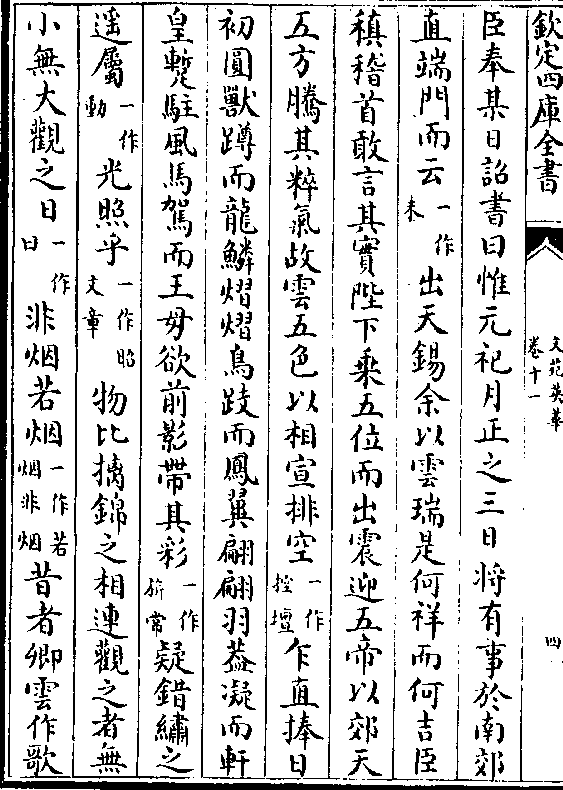 欽定四庫全書
文苑英華
卷十一
四
臣奉某日詔書曰惟元祀月正之三日將有事於南郊
直端門而云一作未出天錫余以雲瑞是何祥而何吉臣
稹稽首敢言其實陛下乗五位而出震迎五帝以郊天
五方騰其粹氣故雲五色以相宣排空一作控壇乍直捧日
初圓獸蹲而龍鱗熠熠鳥跂而鳳翼翩翩羽葢凝而軒
皇蹔駐風馬駕而王母欲前影帶其彩一作旂常疑錯繡之
遥屬一作動光照乎一作昭文章物比摛錦之相連觀之者無
小無大觀之日一作曰非烟若烟一作若烟非烟昔者卿雲作歌